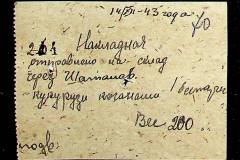 14/XII-43 года
Накладная
отправлено на склад
через Шаталов
кукурузи качанами 1 бестарк
Вес 200
подв